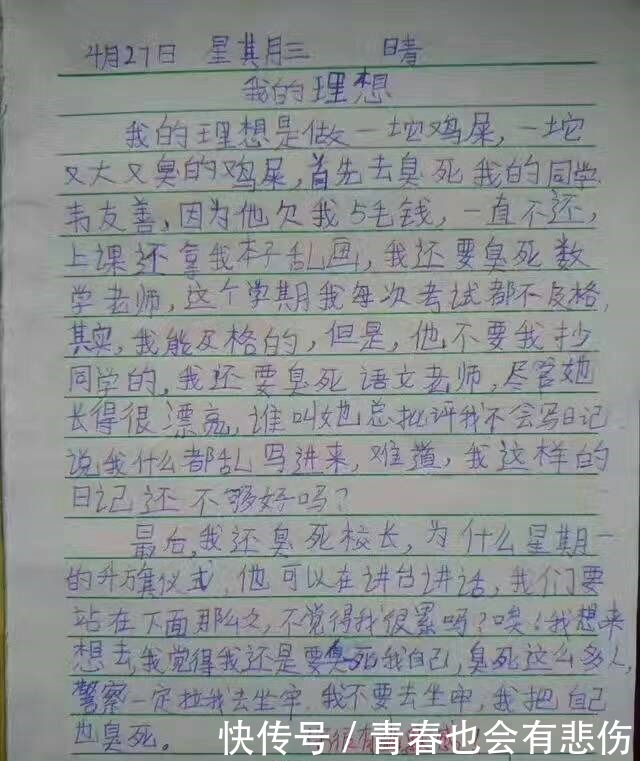 4月27日 星期三 晴
我的理想
我的理想是做一坨鸡屎,一坨
又大又臭的鸡屎,首先去臭死我的同学
韦友善,因为他欠我5毛钱,一直不还,
上课还拿我本子乱画,我还要臭死数
学老师,这个学期我每次考试都不及格,
其实,我能及格的,但是,他不要我抄
同学的,我还要臭死语文老师,尽管她
长得很漂亮,谁叫她总批评我不会写日记
说我什么都乱写进来,难道,我这样的
日记还不够好吗?
最后,我还臭死校长,为什么星期一
的升旗仪式,他可以在讲台讲话,我们要
站在下面那么久,不觉得我很累吗?唉!我想来
想去,我觉得我还是要臭死我自己,臭死这么多人,
警察一定拉我去坐牢,我不要去坐牢,我把自己
也臭死。
快传号/青春也会有悲伤